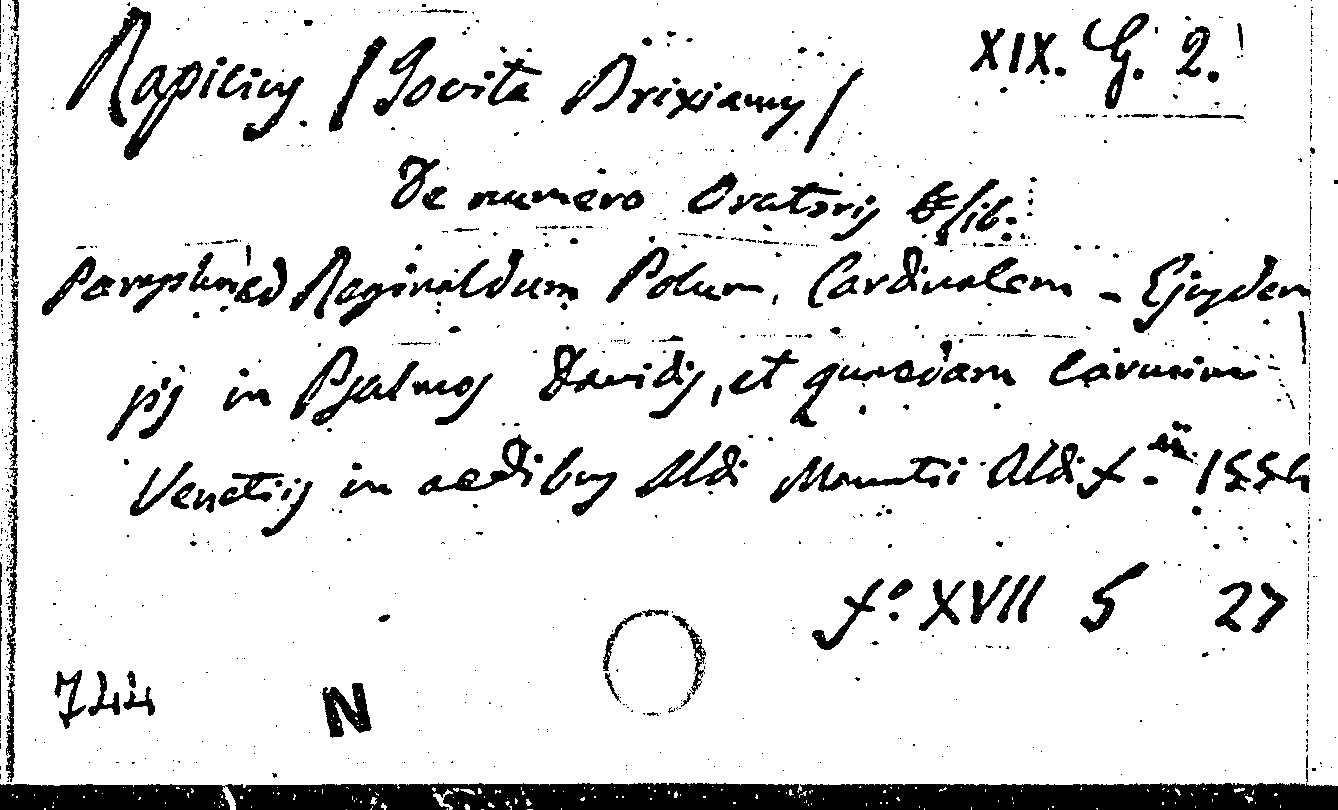 Rapicius / Jovita Brixianus / XIX. G. 2.
De numero Oratorij lib:
ad Reginaldum Polum, Cardinalem - Ejusdem
in Psalmos Davidis, et quaedam Carmina
Venetiis in aedibus Aldi Manutii Aldi f. 1554
f.º XVII 5 27
744 N